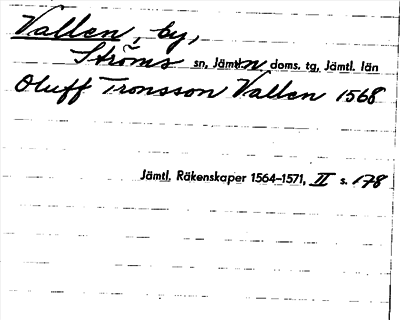 Vallen, by,
Ströms sn, Jämt n doms. tg, Jämtl. län
Oluff Tronsson Vallen 1568
Jämtl, Räkenskaper 1564–1571, II s. 178